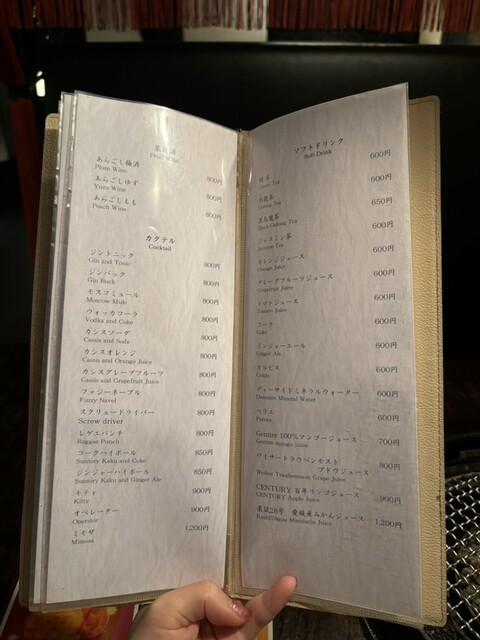 果実酒
Fruit Wine
あらごし梅酒 800円
Plum Wine
あらごしゆず 800円
Yuzu Wine
あらごしもも 800円
Peach Wine
カクテル
Cocktail
ジントニック 800円
Gin and Tonic
ジンバック 800円
Gin Buck
モスコミュール 800円
Moscow Mule
ウォッカコーラ 800円
Vodka and Coke
カシスソーダ 800円
Cassis and Soda
カシスオレンジ 800円
Cassis and Orange Juice
カシスグレープフルーツ 800円
Cassis and Grapefruit Juice
ファジーネーブル 800円
Fuzzy Navel
スクリュードライバー 800円
Screw driver
レゲエパンチ 800円
Reggae Punch
コークハイボール 850円
Suntory Kaku and Coke
ジンジャーハイボール 850円
Suntory Kaku and Ginger Ale
キティ 900円
Kitty
オペレーター 900円
Operator
ミモザ 1,200円
Mimosa
ソフトドリンク
Soft Drink
緑茶 600円
Green Tea
烏龍茶 600円
Oolong Tea
黒烏龍茶 650円
Black Oolong Tea
ジャスミン茶 600円
Jasmine Tea
オレンジジュース 600円
Orange Juice
グレープフルーツジュース 600円
Grapefruit Juice
トマトジュース 600円
Tomato Juice
コーラ 600円
Coke
ジンジャーエール 600円
Ginger Ale
カルピス 600円
Calpis
ディーサイドミネラルウォーター 600円
Deeside Mineral Water
ペリエ 600円
Perrier
Genuine 100%マンゴージュース 700円
Genuine mango juice
ワイサートラウベンモスト
ブドウジュース 800円
Weiser Traubenmost Grape Juice
CENTURY 百年リンゴジュース 900円
CENTURY Apple Juice
果試28号 愛媛産みかんジュース 1,200円
Mandarin Juice